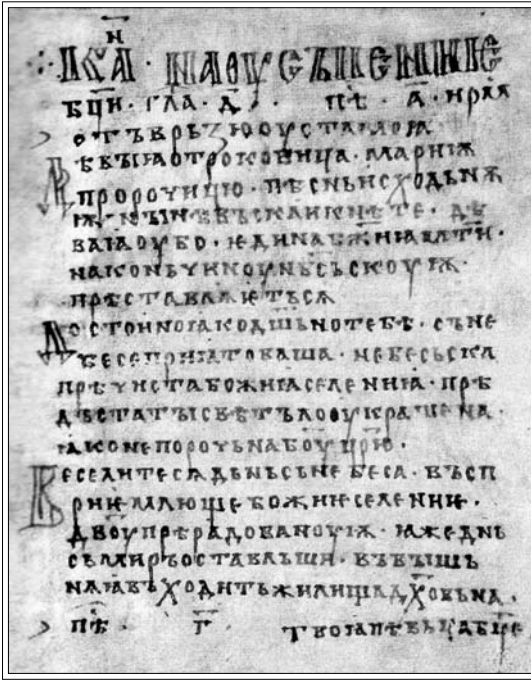 н
кан · на оусъпение
бци · гла · д · · пѣ · а · ирм
отъврьзю оуста моꙗ
ѣвыꙗ отроковица · мариѩ
пророчицю · пѣснь исходьнѫ
ѭ нынѣ въскликнѣте · дѣ
ваꙗ оубо · ѥдина бжиꙗ мти ·
на коньчиноу нбсьскоуѭ ·
прѣставлѥтьсѧ
достоино ꙗко дшьно тебе · съ не
бесе приꙗтоваша · небесьска
прѣчиста божиꙗ селениꙗ · прѣ
дъста ты свѣтъло оукрашена ·
ꙗко непорочьна боу црю ·
веселитесѧ дьньсь небеса · въсп
риимлюще божиѥ селениѥ ·
двоу прѣрадованоуѭ · ꙗже днь
съ миръ оставльши · въ вышь
нꙗꙗ въходить жилища дховьна ·
пѣ · г твоꙗ пѣвьца бце